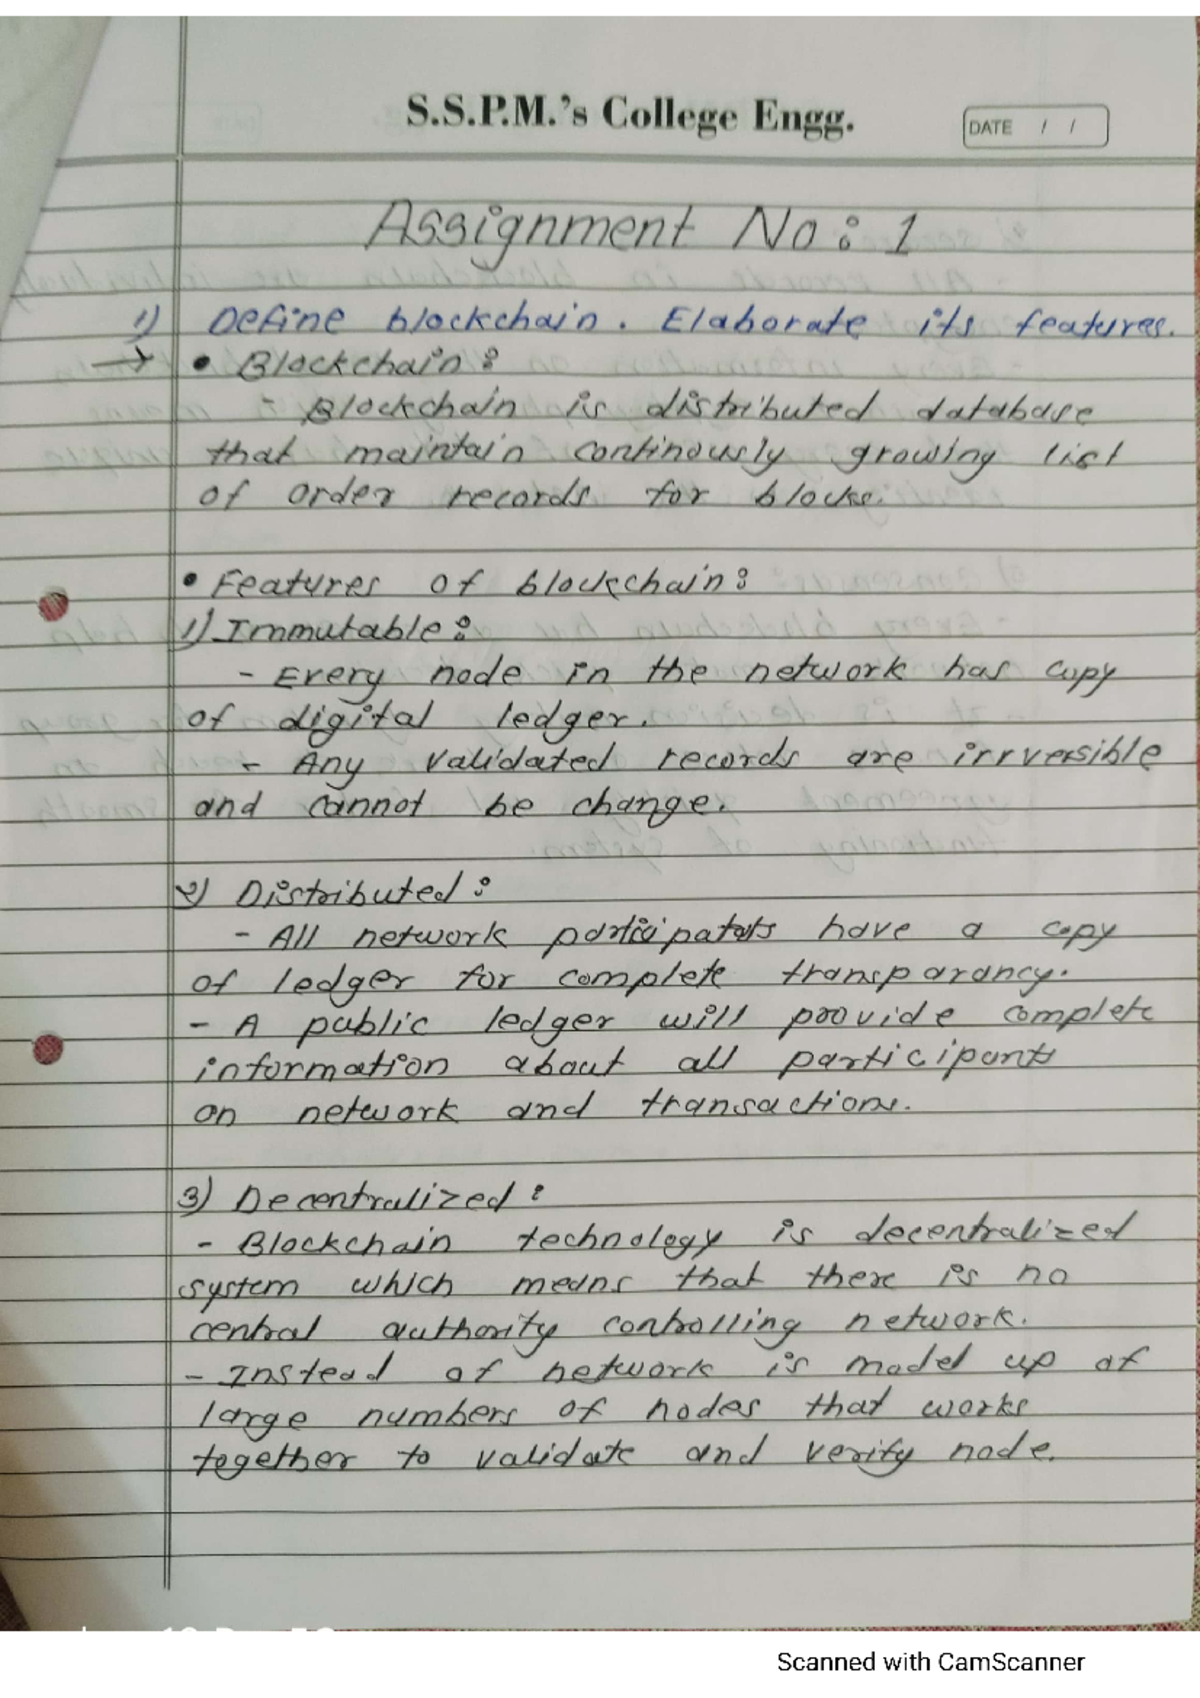 S.S.P.M.'s College Engg.
DATE / /
Assignment No: 1
1) Define blockchain. Elaborate its features.
→ • Blockchain:
- Blockchain is distributed database
that maintain continously growing list
of order records for blocks.
• Features of blockchain:
1) Immutable:
- Every node in the network has copy
of digital ledger.
- Any validated records are irrversible
and cannot be change.
2) Distributed:
- All network have a copy
of ledger for complete transparancy.
- A public ledger will provide complete
information about all participants
on network and transactions.
3) Decentralized:
- Blockchain technology is decentralized
system which means that there is no
central authority controlling network.
- Instead of network is maded up of
large numbers of nodes that works
together to validate and verify node.
Scanned with CamScanner